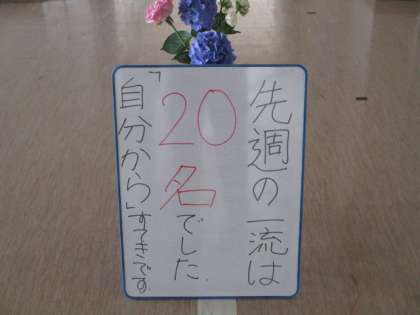 先週の一流は
20名でした.
「自分から」すてきです。